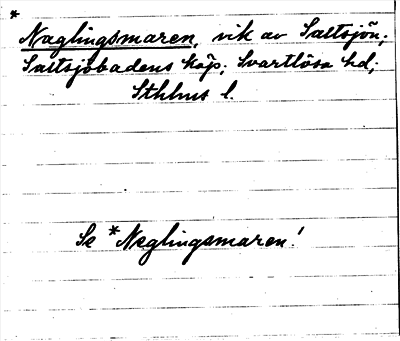 *
Naglingsmaren, vik av Saltsjön;
Saltsjöbadens köp; Svartlösa hd;
Sthlms l.
Se *Neglingsmaren!